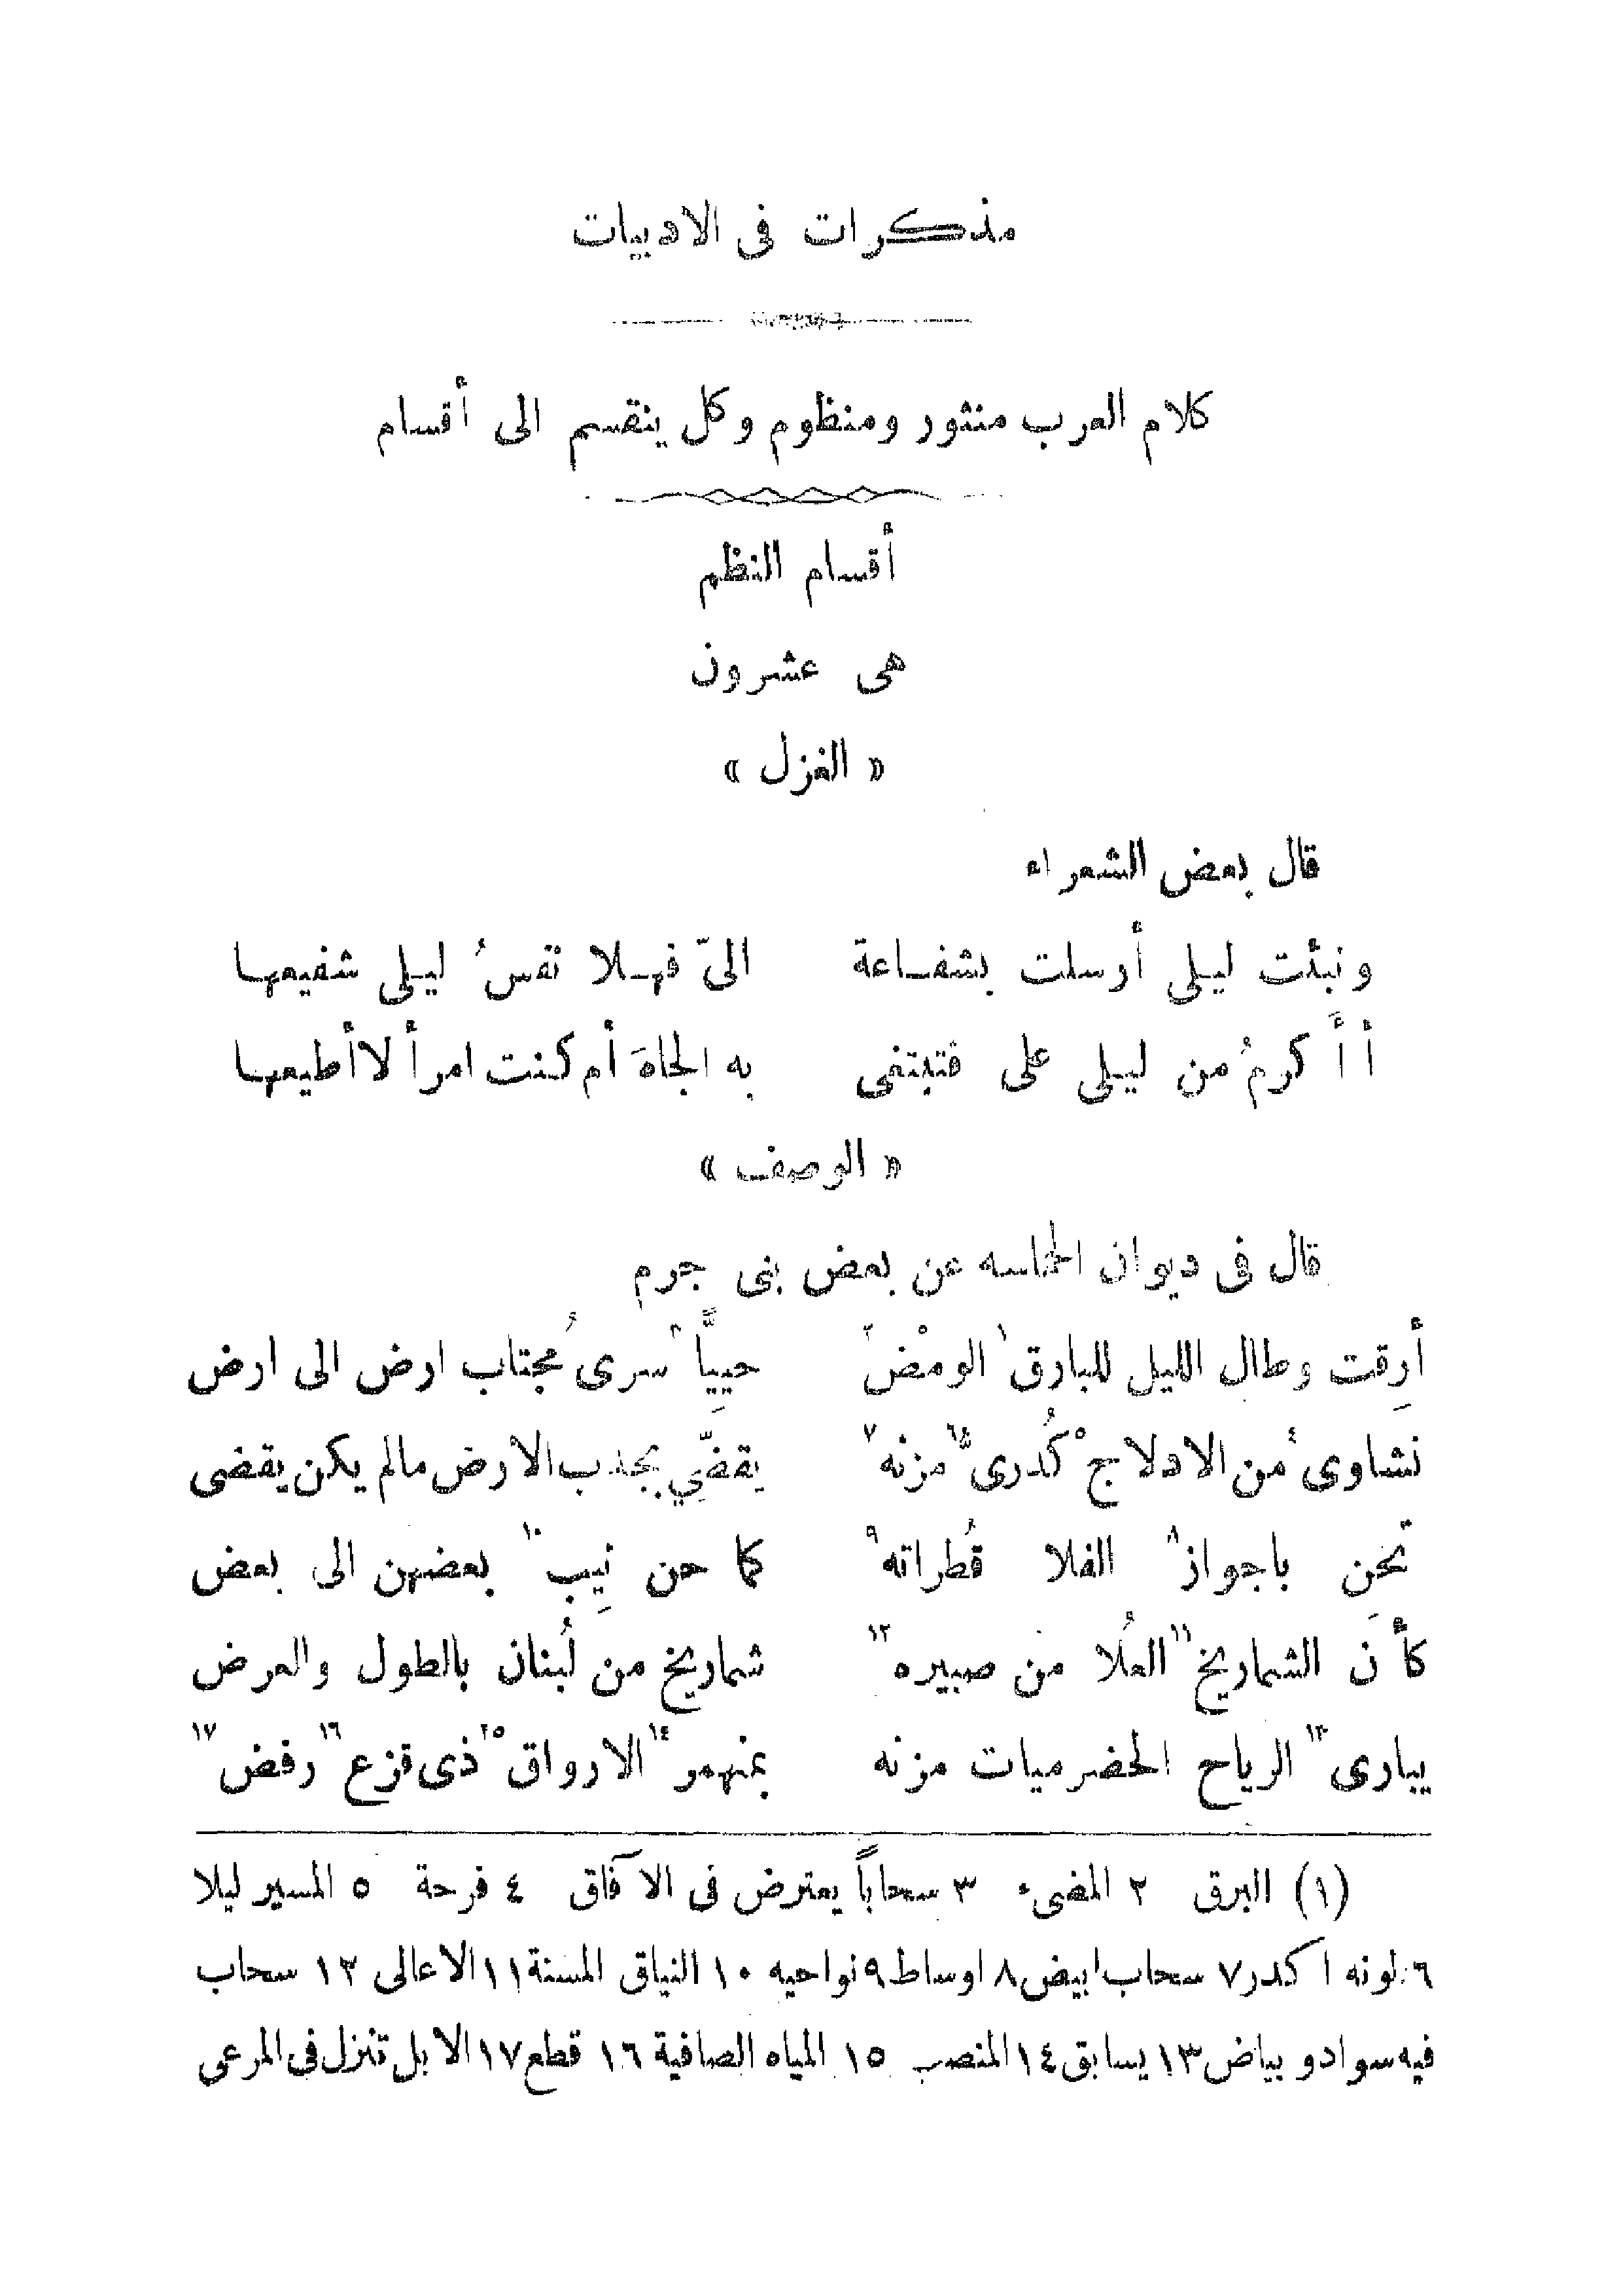 مذكرات فى الادبيات
كلام العرب منثور ومنظوم وكل ينقسم الى أقسام
أقسام النظم
هى عشرون
« الغزل »
قال بعض الشعراء
ونبئت ليلى أرسلت بشفاعة الىّ فهلا نفسُ ليلى شفيعها
أأَكرمُ من ليلى على فتبتغى به الجاهَ أم كنت امرأ لا أطيعها
« الوصف »
قال فى ديوان الحماسه عن بعض بنى جرم
أرِقت وطال الليل للبارق١ الومْض٢ حبيِّاً٣ سرى مُجتاب ارض الى ارض
نشاوى٤ من الادلاج٥ كُدرى٦ مزنه٧ يقضّى بجدب الارض مالم يكن يقضى
تحِن باجواز٨ الفلا قُطراته٩ كما حن نِيب١٠ بعضهن الى بعض
كأن الشماريخ١١ العُلا من صبيره١٢ شماريخ من لُبنان بالطول والعرض
يبارى١٣ الرياح الحضرميات مزنه بمنهمر١٤ الارواق١٥ ذى قزع١٦ رفض١٧
(١) البرق ٢ المضىء ٣ سحاباً يعترض فى الآفاق ٤ فرحة ٥ المسير ليلا
٦ لونه اكدر ٧ سحاب ابيض ٨ اوساط ٩ نواحيه ١٠ النياق المسنة ١١ الاعالى ١٢ سحاب
فيه سواد و بياض ١٣ يسابق ١٤ المنصب ١٥ المياه الصافية ١٦ قطع ١٧ الابل تنزل فى المرعى